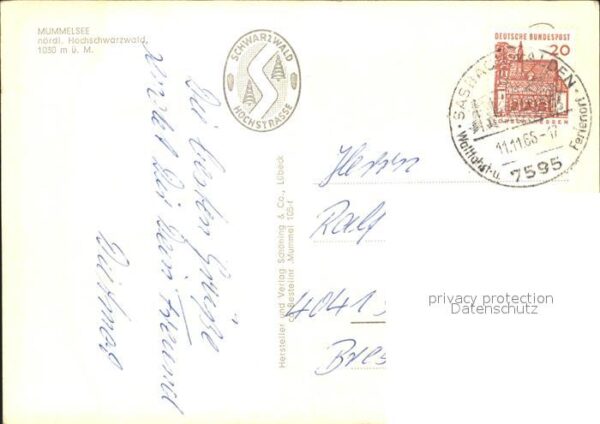 MUMMELSEE
nördl. Hochschwarzwald,
1030 m ü. M.
SCHWARZWALD
HOCHSTRASSE
DEUTSCHE BUNDESPOST
20
11.11.65-17
Wallfahrt- u. Ferienort
7595
Die besten Grüße
sendet Dir Dein Freund
Dietmar
Hersteller und Verlag Schöning & Co., Lübeck
Bestellnr. Mummel 105-f
Herrn
Ralf
4041
Bres
privacy protection
Datenschutz